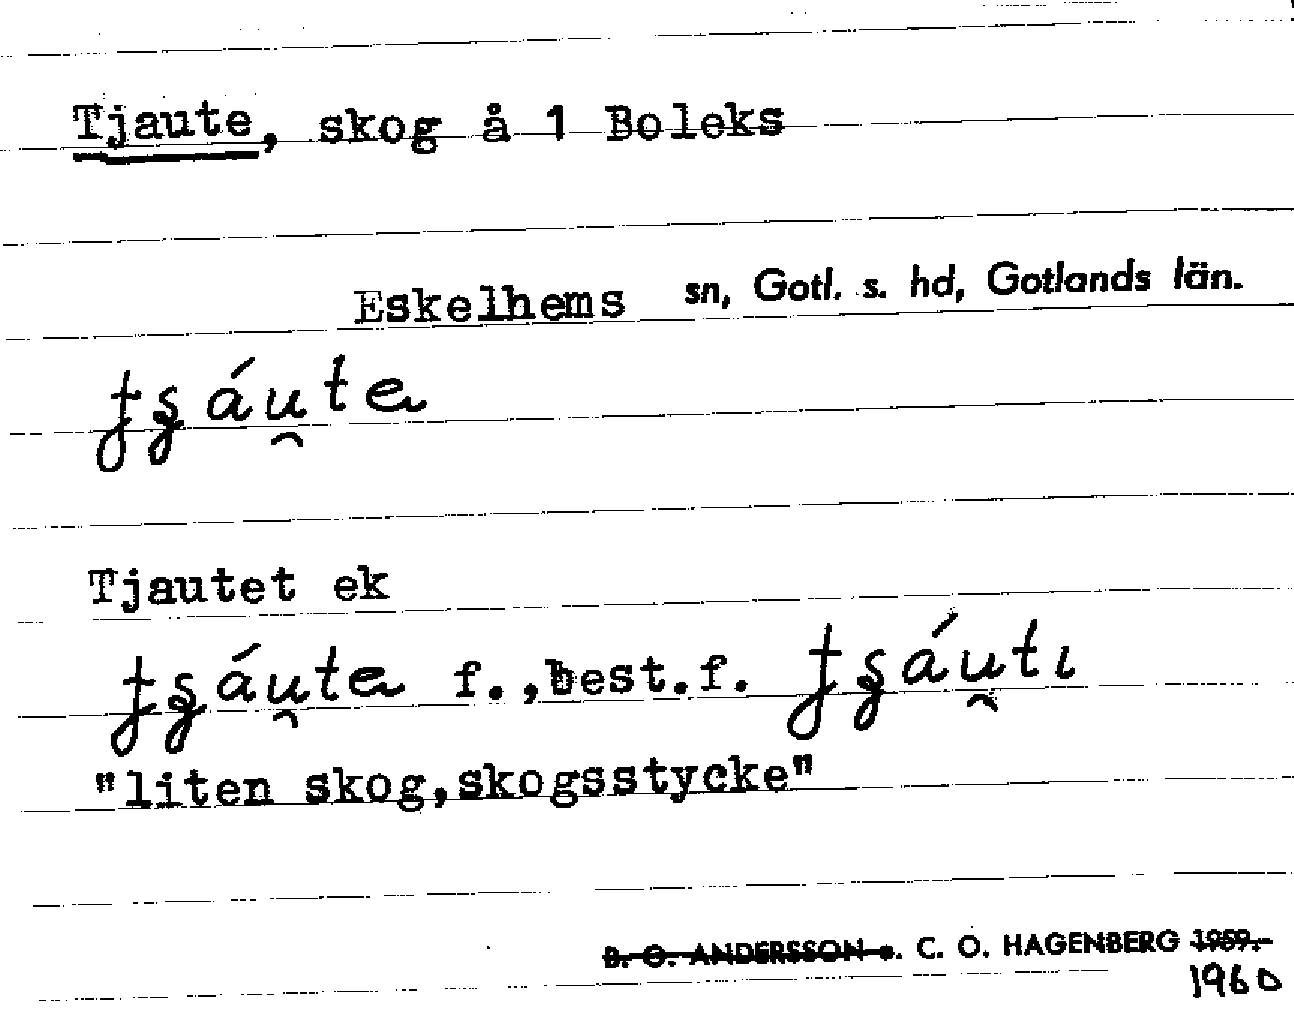 Tjaute, skog å 1 Boleks
Eskelhems sn, Gotl. s. hd, Gotlands län.
Tjautet ek
f.,best.f.
"liten skog,skogsstycke"
B. O. ANDERSSON o. C. O. HAGENBERG 1959.
1960